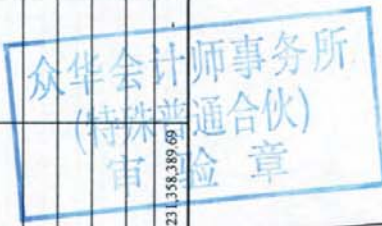 众华会计师事务所
(特殊普通合伙)
审验章
231,358,389.69
-